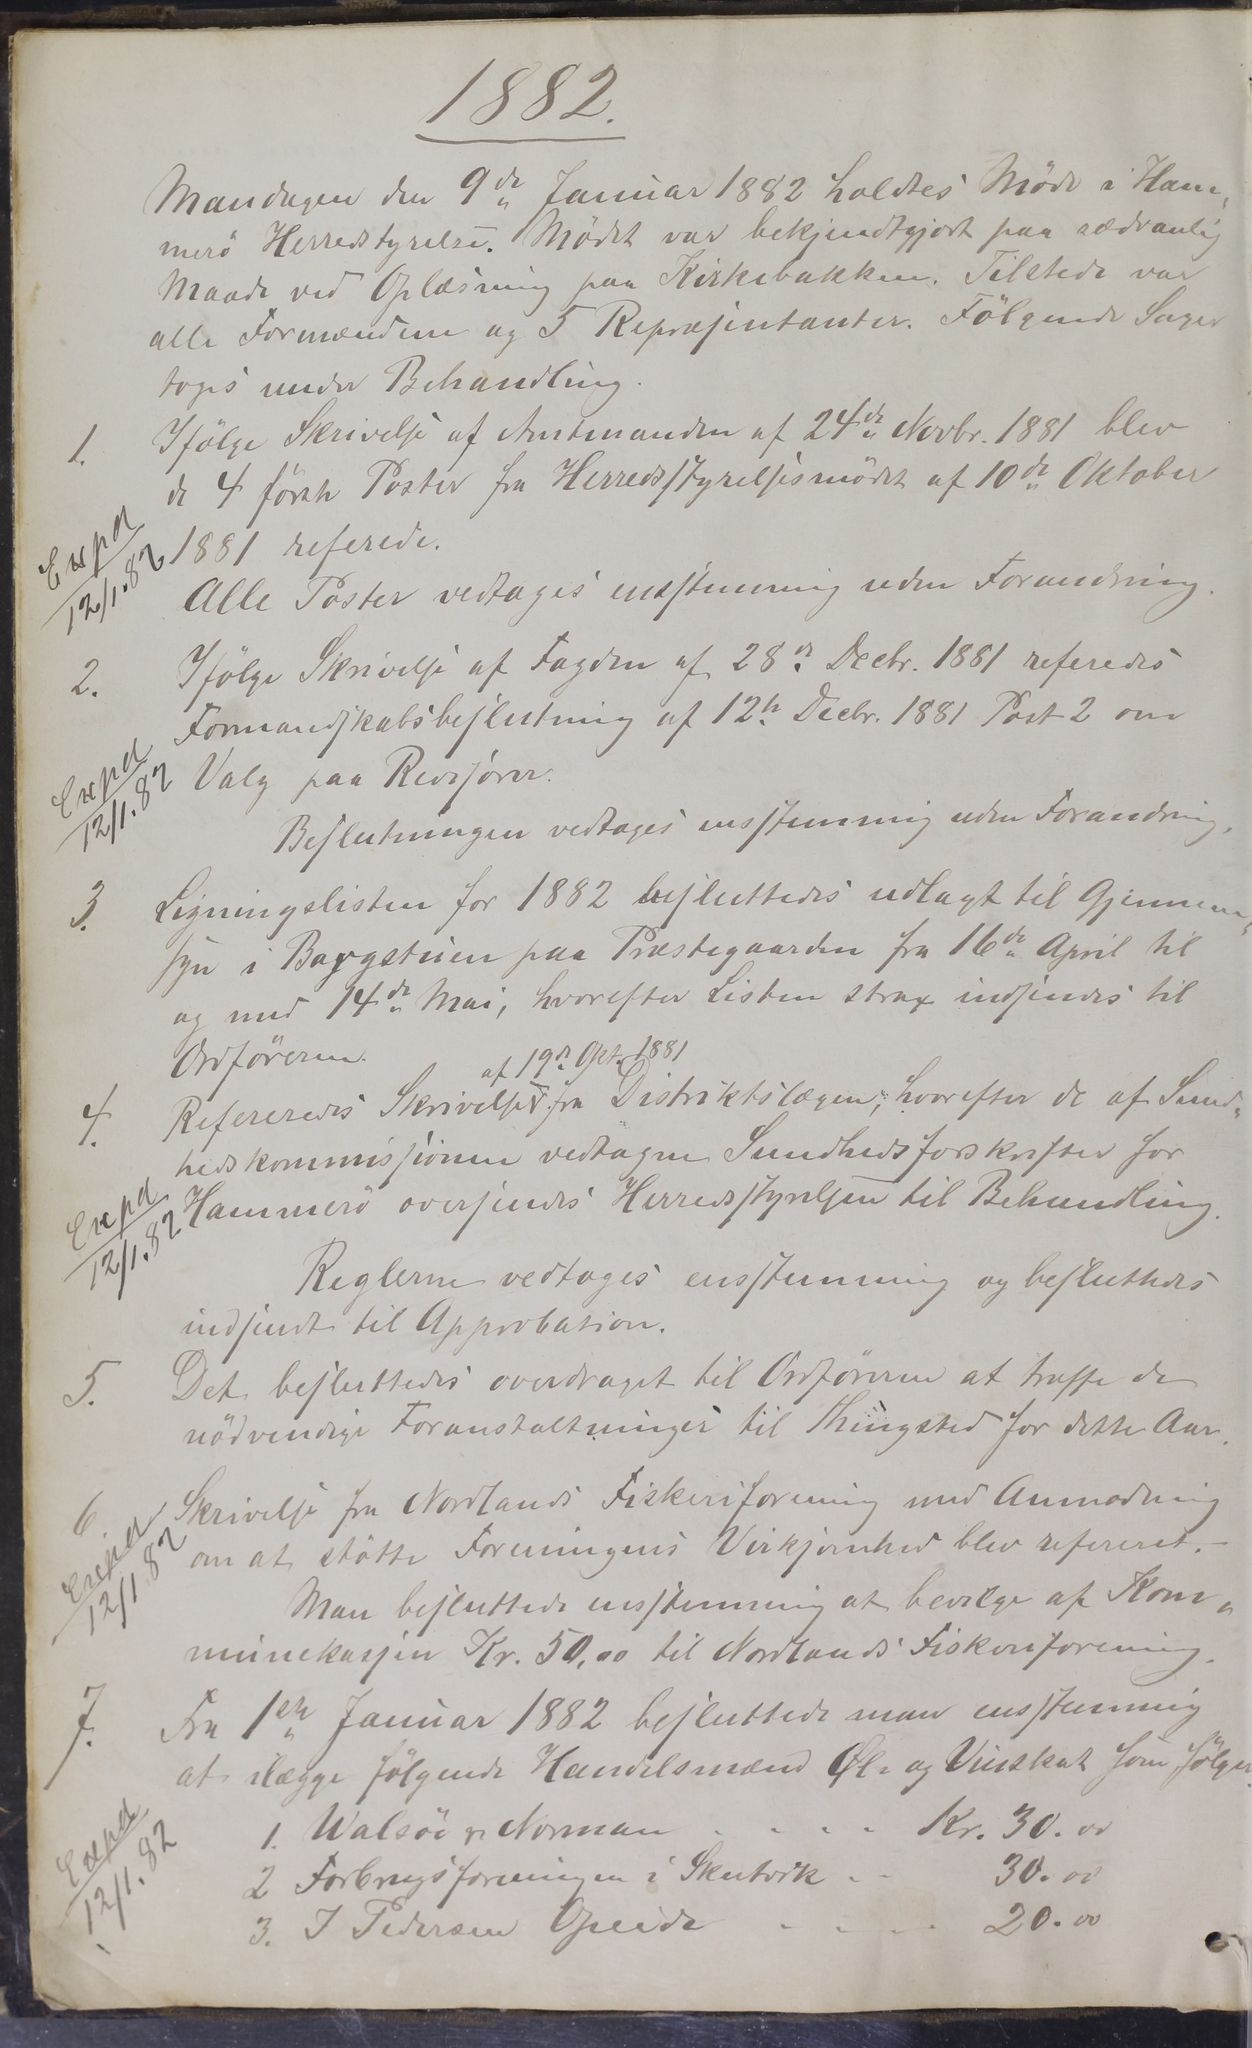 1882.
Mandagen den 9de Januar 1882 holdtes Möde i Ham-
merö Herredstyrelse. Mödet var bekjendtgjort paa sædvanlig
Maade ved Oplæsning paa Kirkebakken. Tilstede var
alle Formændene og 5 Repræsentanter. Fölgende Sager
toges under Behandling.
1. Ifölge Skrivelse af Amtmanden af 24de Novbr. 1881 blev
de 4 förste Poster fra Herredsstyrelsesmödet af 10de Oktober
1881 referede.
Expd 12/1.82
Alle Poster vedtoges enstemmig uden Forandring.
2. Ifölge Skrivelse af Fogden af 28de Decbr. 1881 referedes
Formandskabsbeslutning af 12te Decbr. 1881 Post 2 om
Valg paa Revisorer.
Expd 12/1.82
Beslutningen vedtoges enstemmig uden Forandring.
3. Ligningslisten for 1882 besluttedes udlagt til Gjennem-
syn i Borgstuen paa Præstegaarden fra 16de April til
og med 14de Mai, hvorefter Listen strax indsendes til
Ordföreren.
af 19de Okt. 1881
4. Refereredes Skrivelse fra Distriktslægen, hvorefter de af Sund-
hedskommissionen vedtagne Sundhedsforskrifter for
Hammerö oversendes Herredsstyrelsen til Behandling.
Expd 12/1.82
Reglerne vedtoges enstemmig og besluttedes
indsendt til Approbation.
5. Det besluttedes overdraget til Ordföreren at træffe de
nödvendige Foranstaltninger til Thingsted for dette Aar.
6. Skrivelse fra Nordlands Fiskeriforening med Anmodning
om at stötte Foreningens Virksomhed blev refereret.-
Expd 12/1 82
Man besluttede enstemmig at bevilge af Kom-
munekassen Kr. 50,00 til Nordlands Fiskeriforening.
7. Fra 1ste Januar 1882 besluttede man enstemmig
at ilægge fölgende Handelsmænd Øl- og Vinskat som fölger.
Expd 12/1.82
1. Walsöe Norman - - - - Kr. 30.00
2 Forbrugsforeningen i Skutvik - - 30.00
3. I Pedersen Opeide - - - - 20.00